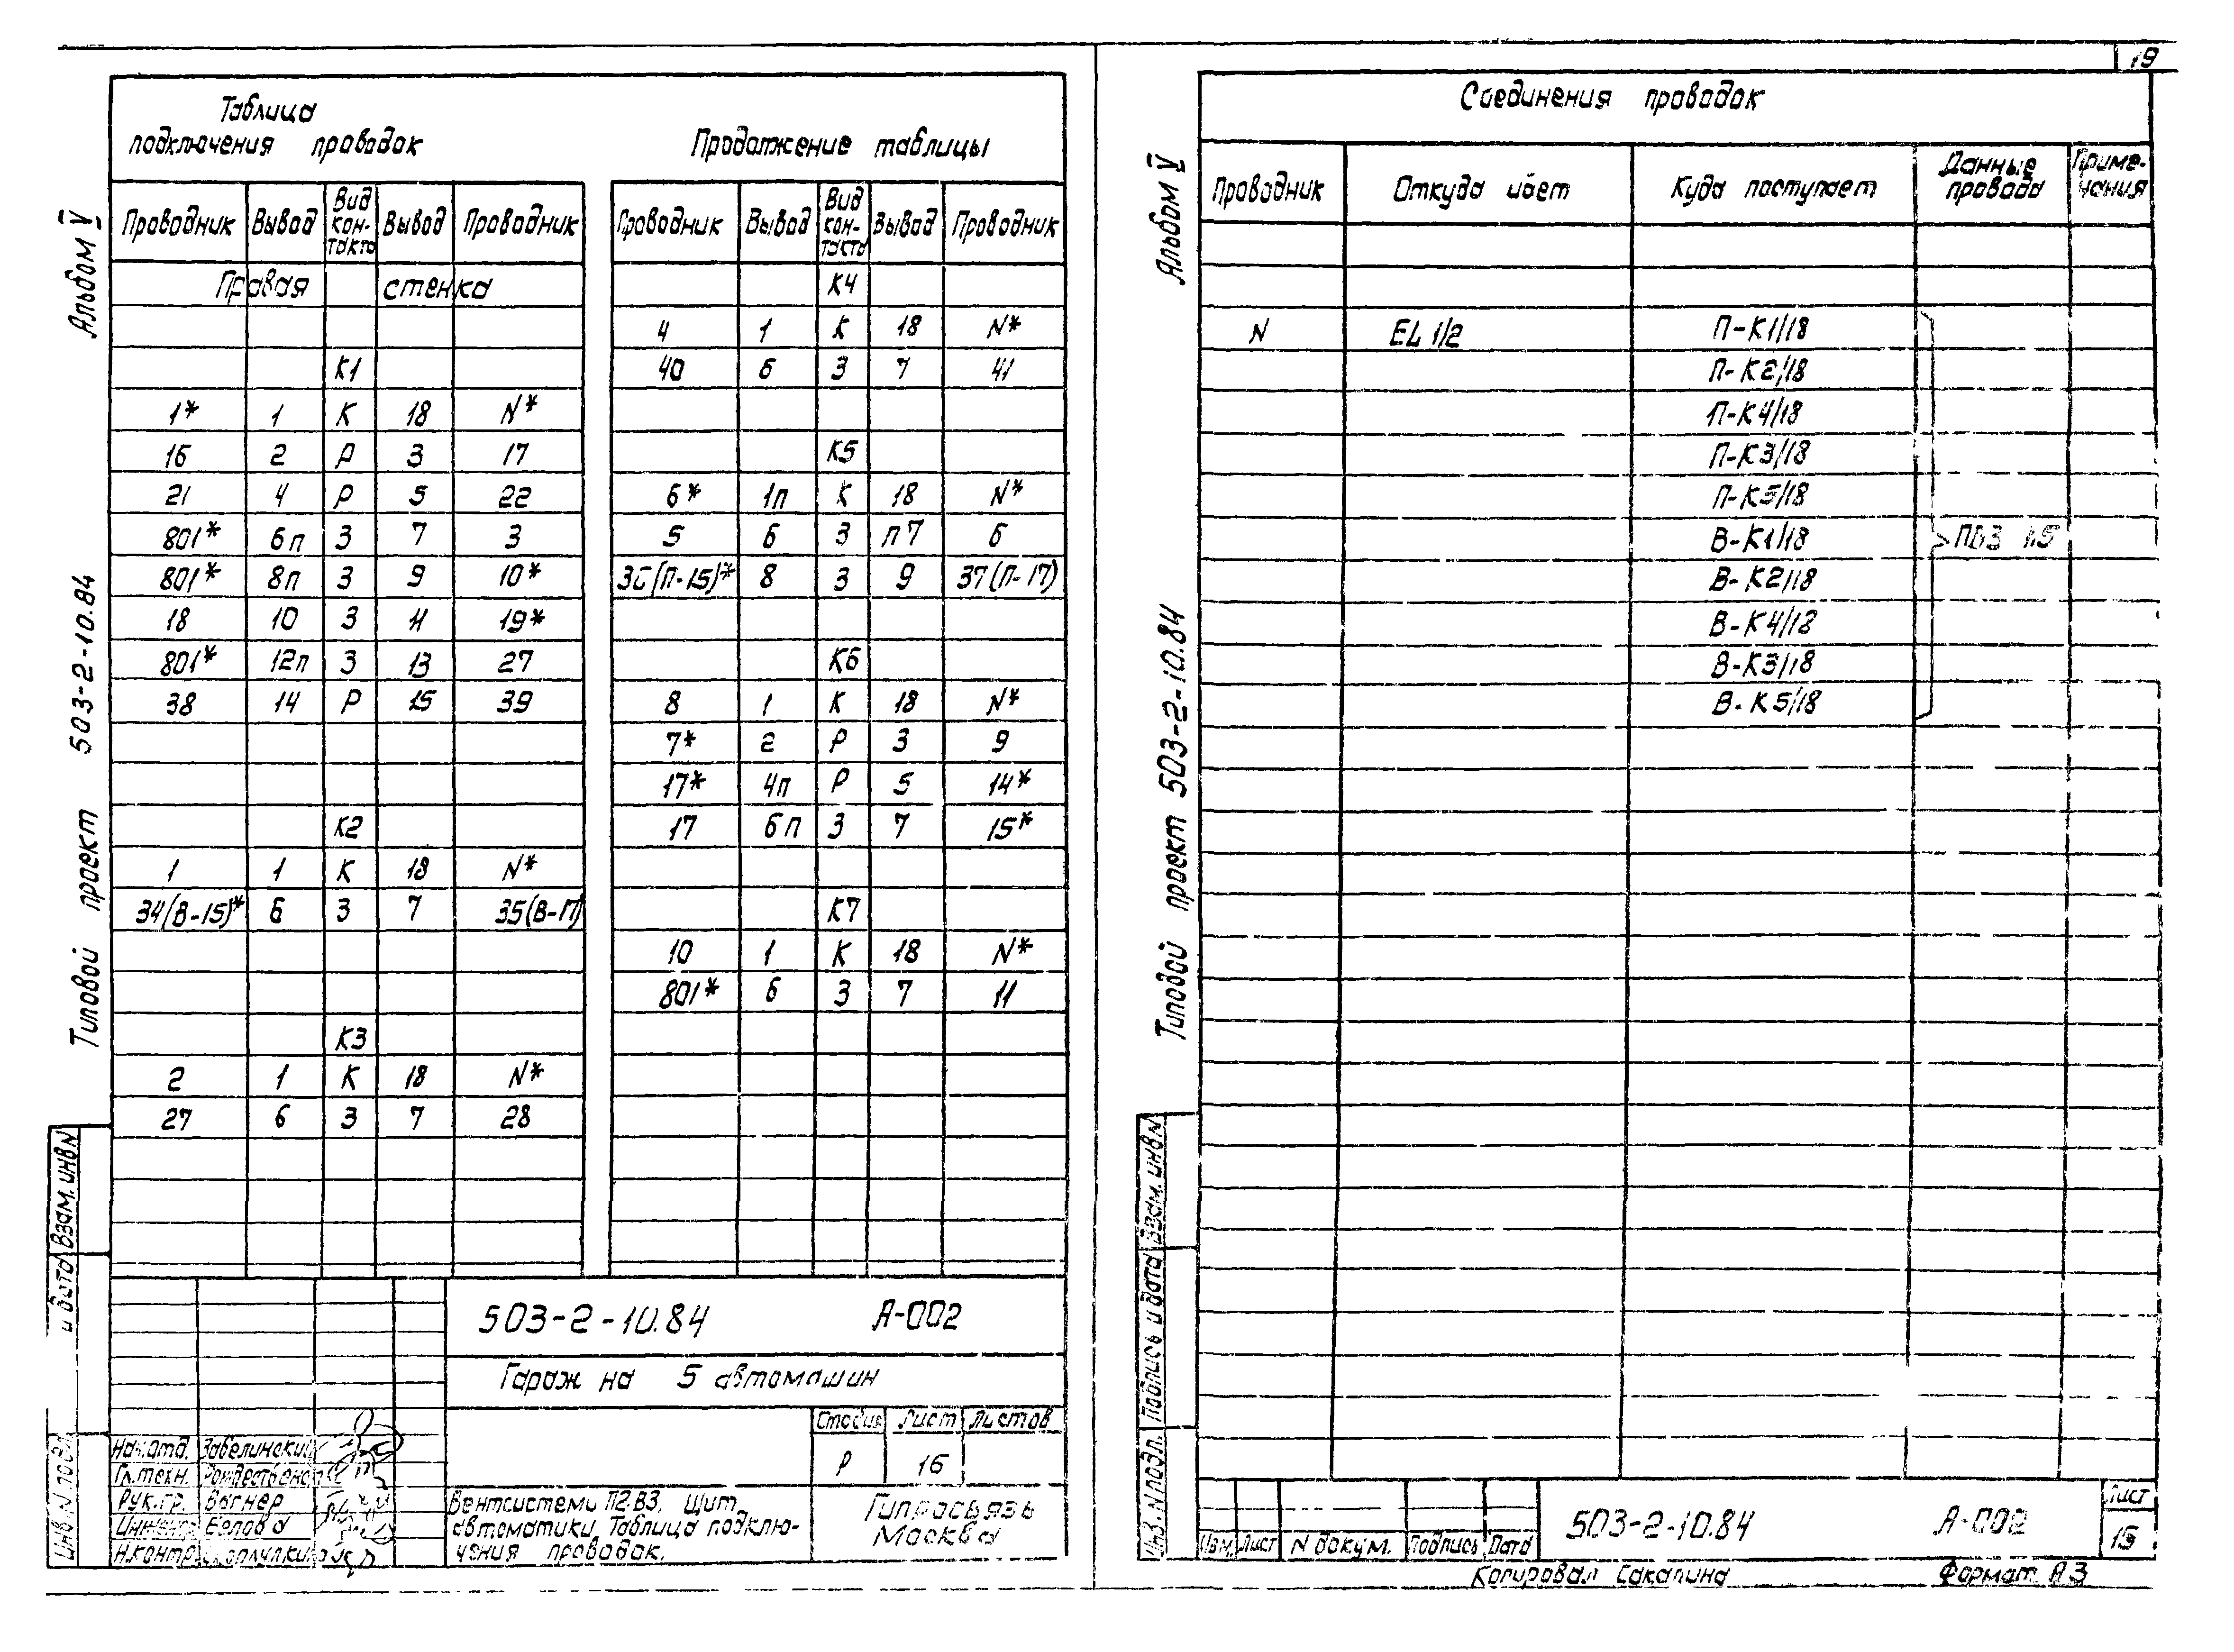 19
Альбом V
Типовой проект 503-2-10.84
Таблица
подключения проводок
Проводник Вывод Вид кон-такта Вывод Проводник
Правая стенка
К1
1* 1 К 18 N*
16 2 Р 3 17
21 4 Р 5 22
801* 6п З 7 3
801* 8п З 9 10*
18 10 З 11 19*
801* 12п З 13 27
38 14 Р 15 39
К2
1 1 К 18 N*
34(В-15)* 6 З 7 35(В-17)
К3
2 1 К 18 N*
27 6 З 7 28
Продолжение таблицы
Проводник Вывод Вид кон-такта Вывод Проводник
К4
4 1 К 18 N*
40 6 З 7 41
К5
6* 1п К 18 N*
5 6 З п7 6
36(П-15)* 8 З 9 37(П-17)
К6
8 1 К 18 N*
7* 2 Р 3 9
17* 4п Р 5 14*
17 6п З 7 15*
К7
10 1 К 18 N*
801* 6 З 7 11
Взам. инв. N
и дата
Инв. N подл.
503-2-10.84 А-002
Гараж на 5 автомашин
Стадия Лист Листов
Р 16
Нач. отд. Забелинский
Гл. техн.
Рук. гр. Вагнер
Инженер Белова
Н. контр.
Вентсистемы П2.В3. Щит
автоматики. Таблица подклю-
чения проводок.
Гипросвязь
Москва
Альбом V
Типовой проект 503-2-10.84
Соединения проводок
Проводник Откуда идет Куда поступает Данные провода Приме-чания
N EL 1/2 П-К1/18
П-К2/18
П-К4/18
П-К3/18
П-К5/18
В-К1/18 ПВ3 1.5
В-К2/18
В-К4/18
В-К3/18
В-К5/18
Взам. инв. N
Подпись и дата
Инв. N подл.
Изм. Лист N докум. Подпись Дата
503-2-10.84 А-002
Лист
15
Копировал Сакалина Формат А3